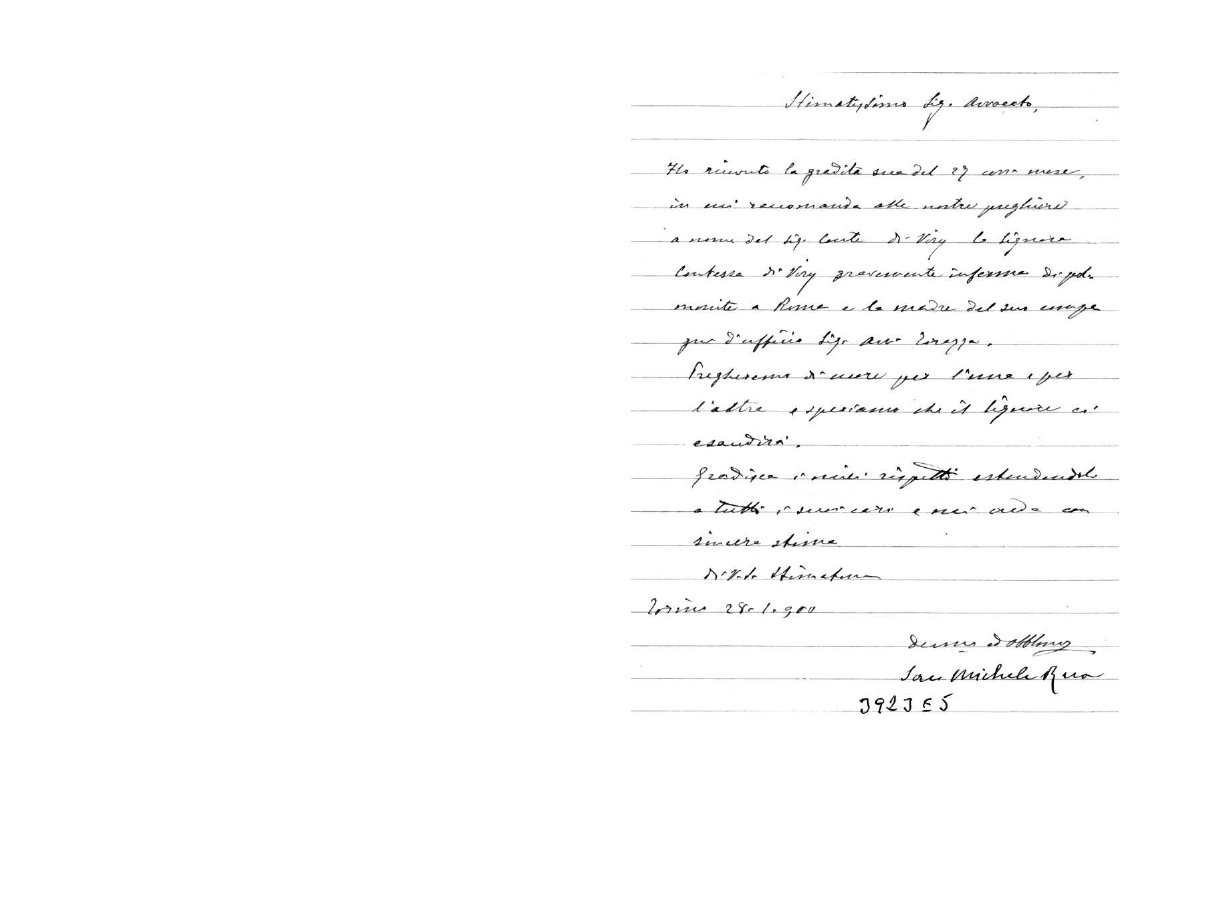 Stimatissimo Sig. Avvocato,
Ho ricevuto la gradita sua del 27 corr. mese,
in cui raccomanda alle nostre preghiere
a nome del Sig. Conte di Viry la Signora
Contessa di Viry gravemente inferma di pol
monite a Roma e la madre del suo compa
gno d'ufficio Sig. Avv.
Pregheremo di cuore per l'una e per
l'altra e speriamo che il Signore ci
esaudirà.
Gradisca i miei rispetti estendendoli
a tutti i suoi cari e mi creda con
sincera stima
di V. S. Stimatissima
Torino 28.1.900
Sac. Michele Rua
3923E5